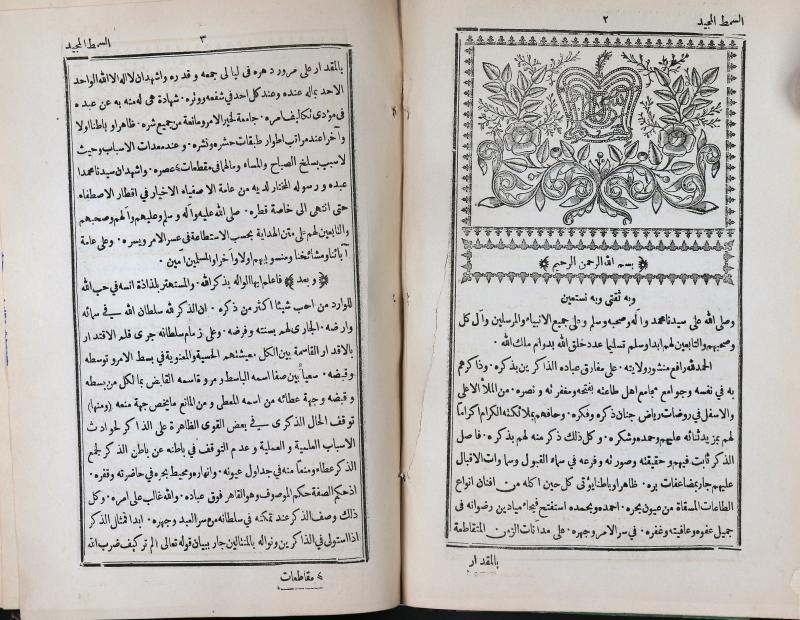 السمط المجيد
٢
بسم الله الرحمن الرحيم
وبه ثقتي وبه نستعين
وصلى الله على سيدنا محمد وآله وصحبه وسلم وعلى جميع الانبياء والمرسلين وآل كل
وصحبهم والتابعين لهم ابدا وسلم تسليما عدد خلق الله بدوام ملك الله ۰
الحمد لله رافع منشور ولايته ۰ على مفارق عباده الذاكرين بذكره ۰ وذاكرهم
به في نفسه وجوامع مجامع اهل طاعته بفتحه ومغفرته و نصره ۰ من الملأ الاعلى
والاسفل في روضات رياض جنان ذكره وفكره ۰ وحافهم بملائكته الكرام اكراما
لهم بمزيد ثنائه عليهم وحمده وشكره ۰ وكل ذلك ذكر منه لهم بذكره ۰ فاصل
الذكر ثابت فيهم وحقيقته وصورته وفرعه في سماء القبول وسماوات الاقبال
عليهم جار بمضاعفات بره ۰ ظاهرا وباطنا يؤتى كل حين اكله من افنان انواع
الطاعات المسقاة من عيون بحره ۰ احمده وبحمده استفتح فيحاء ميادين رضوانه فى
جميل عفوه وعافيته وغفره ۰ في سر الامر وجهره ۰ على مدآنات الزمن المتقاطعة
بالمقدار
٣
السمط المجيد
بالمقدار على مرور دهره في ليالى جمعه و قدره واشهد ان لا اله الا الله الواحد
الاحد بماله عنده وعند كل احد في شفعه ووتره ۰ شهادة هي له منه به عن عبده
في مؤدى تكاليف امره ۰ جامعة لخير الامر ومانعة من جميع شره ۰ ظاهرا وباطنا اولا
وآخرا عند مراتب اطوار طبقات حشره ونشره ۰ وعند معدات الاسباب وحيث
لاسبب بسلخ الصباح والمساء ومالهما في مقطعات ٤ عصره ۰ واشهد ان سيدنا محمدا
عبده ورسوله المختار لديه من عامة الاصفياء الاخيار في اقطار الاصطفاء
حتى انتهى الى خاصة قطره ۰ صلى الله عليه وآله وسلم وعليهم وآلهم وصحبهم
والتابعين لهم على متن الهداية بحسب الاستطاعة في عسر الامر ويسره ۰ وعلى عامة
آبائنا ومشائخنا ومنسوبيهم اولا وآخرا والمسلمين امين ۰
﴿ و بعد ﴾ فاعلم ايها الواله بذكر الله ۰ والمستهتر بلذاذة انسه في حب الله
للوارد من احب شيئا اكثر من ذكره ۰ ان الذكر لله سلطان الله في سمائه
وارضه ۰ الجارى لهم بسنته وفرضه ۰ وعلى زمام سلطانه جرى قلم الاقتدار
بالاقدار القاسمة بين الكل معيشتهم الحسية والمعنوية في بسط الامر و توسطه
وقبضه ۰ سعيا بين صفا اسمه الباسط ومروة اسمه القابض بما لكل من بسطه
و قبضه وجهة عطائه من اسمه المعطى ومن المانع ما يخص جهة منعه (ومنها)
توقف الحال الذكرى في بعض القوى الظاهرة على الذاكر لحوادث
الاسباب العلمية و العملية و عدم التوقف في باطنه عن باطن الذكر لجمع
الذكر عطاء ومنعا منه في جداول عيونه ۰ وانهاره ومحيط بحره في حاضرته وقفره ۰
اذ حكم الصفة حكم الموصوف وهو القاهر فوق عباده ۰ والله غالب على امره ۰ وكل
ذلك وصف الذكر عند تمكنه في سلطانه من سر العبد وجهره ۰ ابدا فمثال الذكر
اذا استولى في الذاكرين ونواله بالمثالين جار ببيان قوله تعالى الم تر كيف ضرب الله
٤ مقاطعات